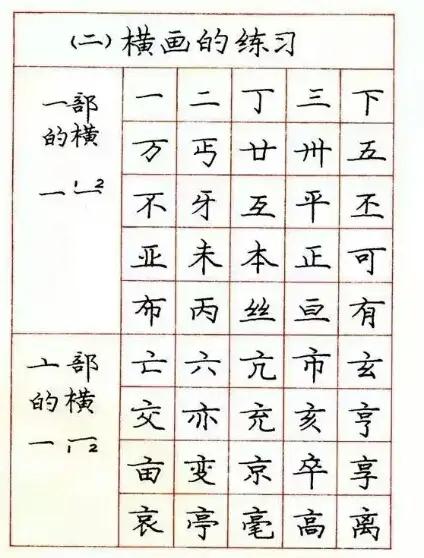 (二)横画的练习
一部的横
一 二 丁 三 下
万 丐 廿 卅 五
不 牙 互 平 丕
亚 未 本 正 可
布 丙 丝 亘 有
亠部的横
亡 六 亢 市 玄
交 亦 充 亥 亨
亩 变 京 卒 享
哀 亭 毫 高 离